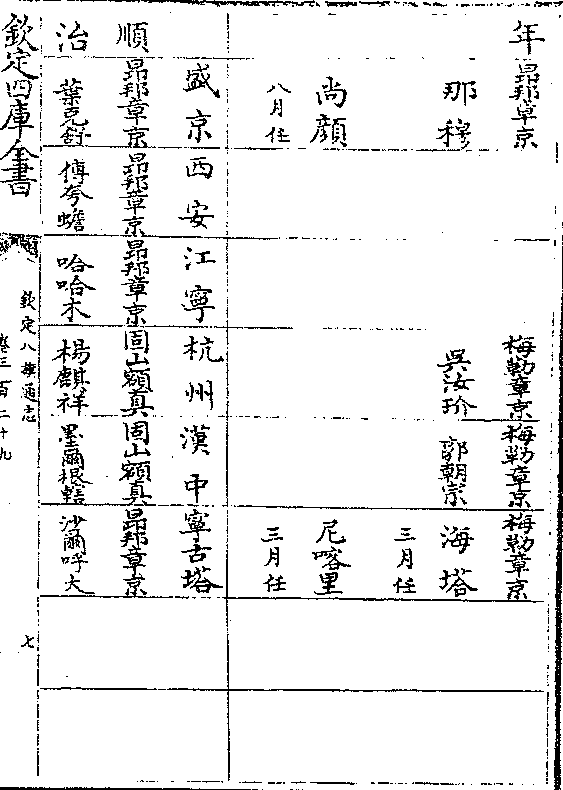 年 昂邦章京 梅勒章京 梅勒章京 梅勒章京
那穆 吳汝玠 郭朝宗 海塔
三月任
尚顏 尼喀里
八月任 三月任
盛京 西安 江寧 杭州 漢中 寧古塔
順 昂邦章京 昂邦章京 昂邦章京 固山額真 固山額真 昂邦章京
治 葉克舒 傅夸蟾 哈哈木 楊麒祥 墨爾根轄 沙爾呼大
欽定四庫全書
欽定八旗通志 七
卷三百二十九